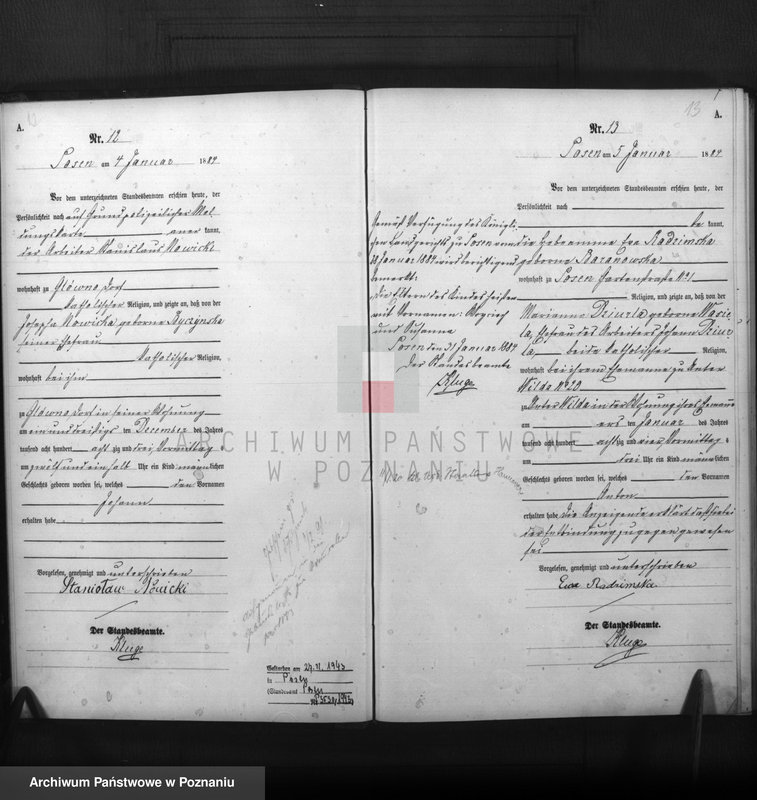 12
A.
Nr. 12
Posen am 4 Januar 1884
Vor dem unterzeichneten Standesbeamten erschien heute, der
Persönlichkeit nach auf Grund polizeilicher Mel-
dungskarte aner kannt,
der Arbeiter Stanislaus Nowicki
wohnhaft zu Glówno Dorf
katholischer Religion, und zeigte an, daß von der
Josepha Nowicka geborne Byczynska
seiner Ehefrau
katholischer Religion,
wohnhaft bei ihm
zu Glówno Dorf in seiner Wohnung
am ein und dreißigs ten Dezember des Jahres
tausend acht hundert acht zig und drei Vormittag s
um zwölf und ein halb Uhr ein Kind männlichen
Geschlechts geboren worden sei, welches den Vornamen
Johann
erhalten habe
Vorgelesen, genehmigt und unterschrieben
Stanisław Nowicki
Der Standesbeamte.
Kluge
Gestorben am 24.11.1943
in Posen
(Standesamt Posen
13
A.
Nr. 13
Posen am 5 Januar 1884
Vor dem unterzeichneten Standesbeamten erschien heute, der
Persönlichkeit nach
be kannt,
die Hebeamme Eva Radzimska
geborne Baranowska
wohnhaft zu Posen Gartenstraße No 1
Religion, und zeigte an, daß von der
Marianna Dziurla geborne
Ehefrau des Arbeiters Johann Dziur
la beide katholischer Religion,
wohnhaft bei ihrem Ehemanne zu Unter
Wilda No 20
zu Unter Wilda in der Wohnung ihres Ehemannes
am ers ten Januar des Jahres
tausend acht hundert acht zig und vier Vormittag s
um drei Uhr ein Kind männlichen
Geschlechts geboren worden sei, welches den Vornamen
Anton
erhalten habe. Die Anzeigende erklärt daß sie bei
der Entbindung zugegen gewesen
sei
Vorgelesen, genehmigt und unterschrieben
Ewa Radzimska
Der Standesbeamte.
Kluge
Gemäß Verfügung des Königli-
chen Landgerichts zu Posen vom
28 Januar 1884 wird berichtigend
bemerkt:
Die Eltern des Kindes heißen
mit Vornamen: Woyciech
und Susanna
Posen den 31 Januar 1884
Der Standesbeamte
Kluge
ARCHIWUM PAŃSTWOWE
W POZNANIU
Archiwum Państwowe w Poznaniu